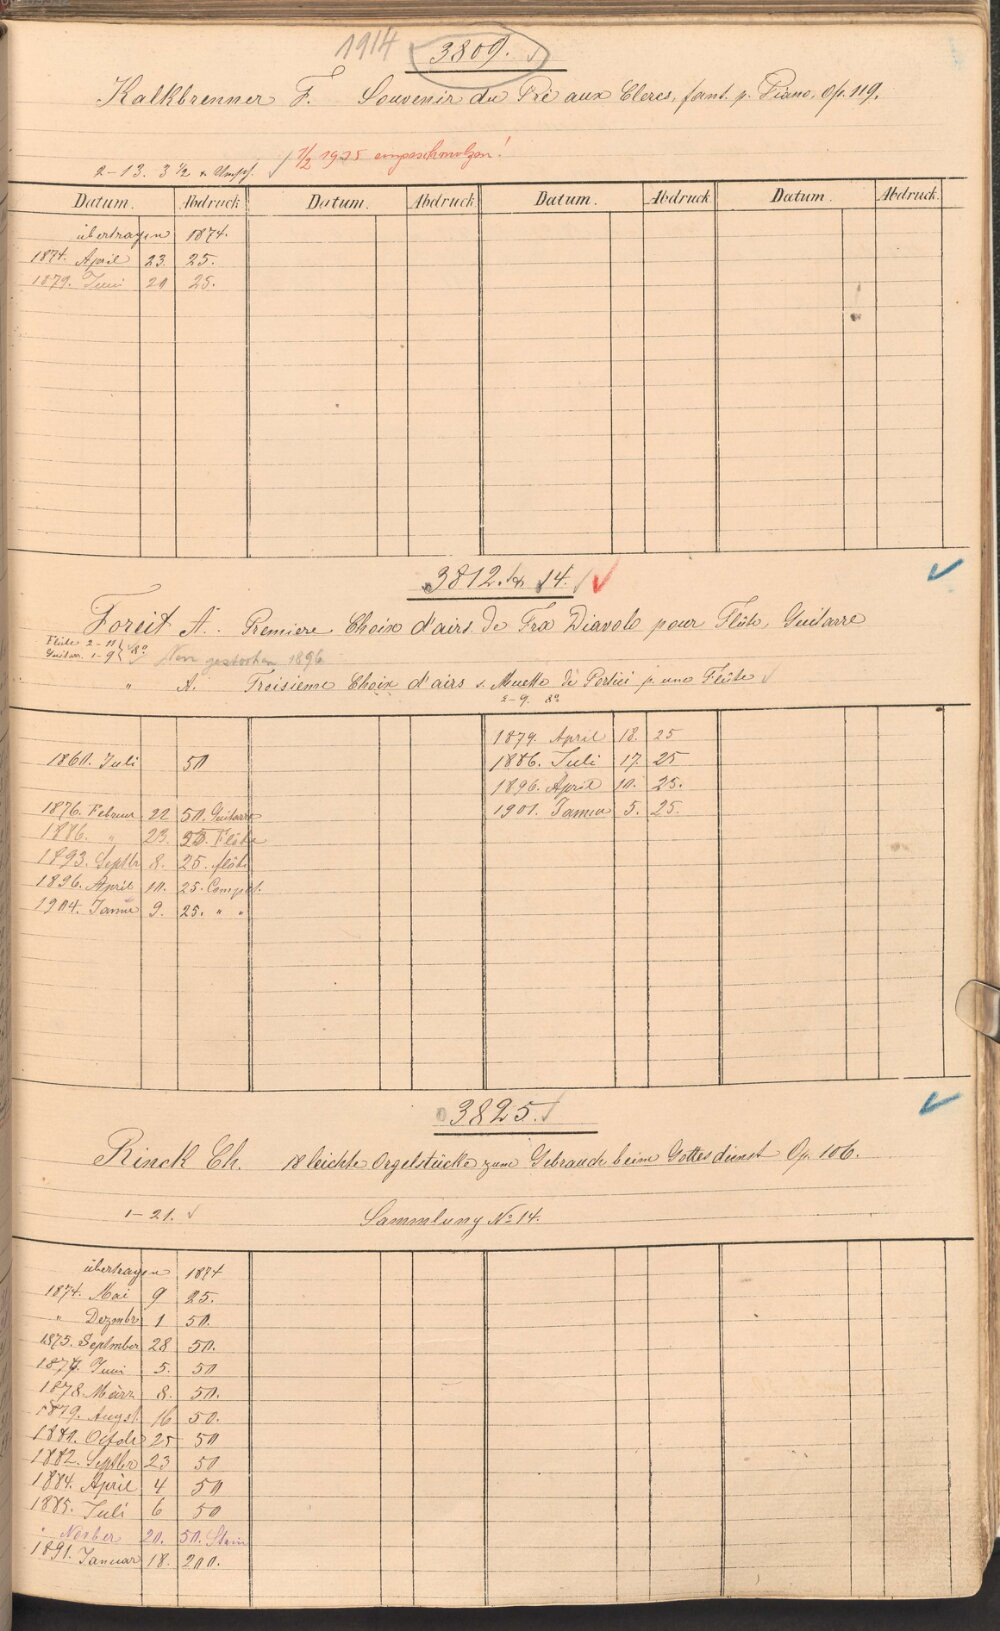 1914 3809.
Kalkbrenner F. Souvenir du Pré aux Clercs, fant. p. Piano, Op. 119.
7/2 1925 eingeschmolzen!
2-13. 3 1/2 & Umschl.
Datum. Abdruck Datum. Abdruck Datum. Abdruck Datum. Abdruck.
übertragen 1874.
1874. April 23. 25.
1879. Juni 20 25.
3812. & 14.
Foreit A. Premiere Choix d'airs de Fra Diavolo pour Flûte, Guitarre
Flûte 2-11
Guitarr. 1-9 8°
Neu gestochen 1896
" A. Troisieme Choix d'airs d. Muette de Portici p. une Flûte
2-9. 8°
1860. Juli 50
1876. Februar 22 50. Guitarre
1886. " 23. 50. Flöte
1893. Septbr 8. 25. flöte
1896. April 10. 25. Complt.
1904. Januar 9. 25. " "
1879. April 18. 25
1886. Juli 17. 25
1896. April 10. 25.
1901. Januar 5. 25.
3825.
Rinck Ch. 18 leichte Orgelstücke zum Gebrauch beim Gottesdienst Op. 106.
1-21. Sammlung No 14.
übertragen 1874
1874. Mai 9 25.
" Dezmbr 1 50.
1875. Septmber 28 50.
1877. Juni 5. 50
1878. März 8. 50.
1879. Augst. 16 50.
1880. Octobr 25 50
1882. Septbr 23 50
1884. April 4 50
1885. Juli 6 50
" Novber 20. 50. Stein
1891. Januar 18. 200.